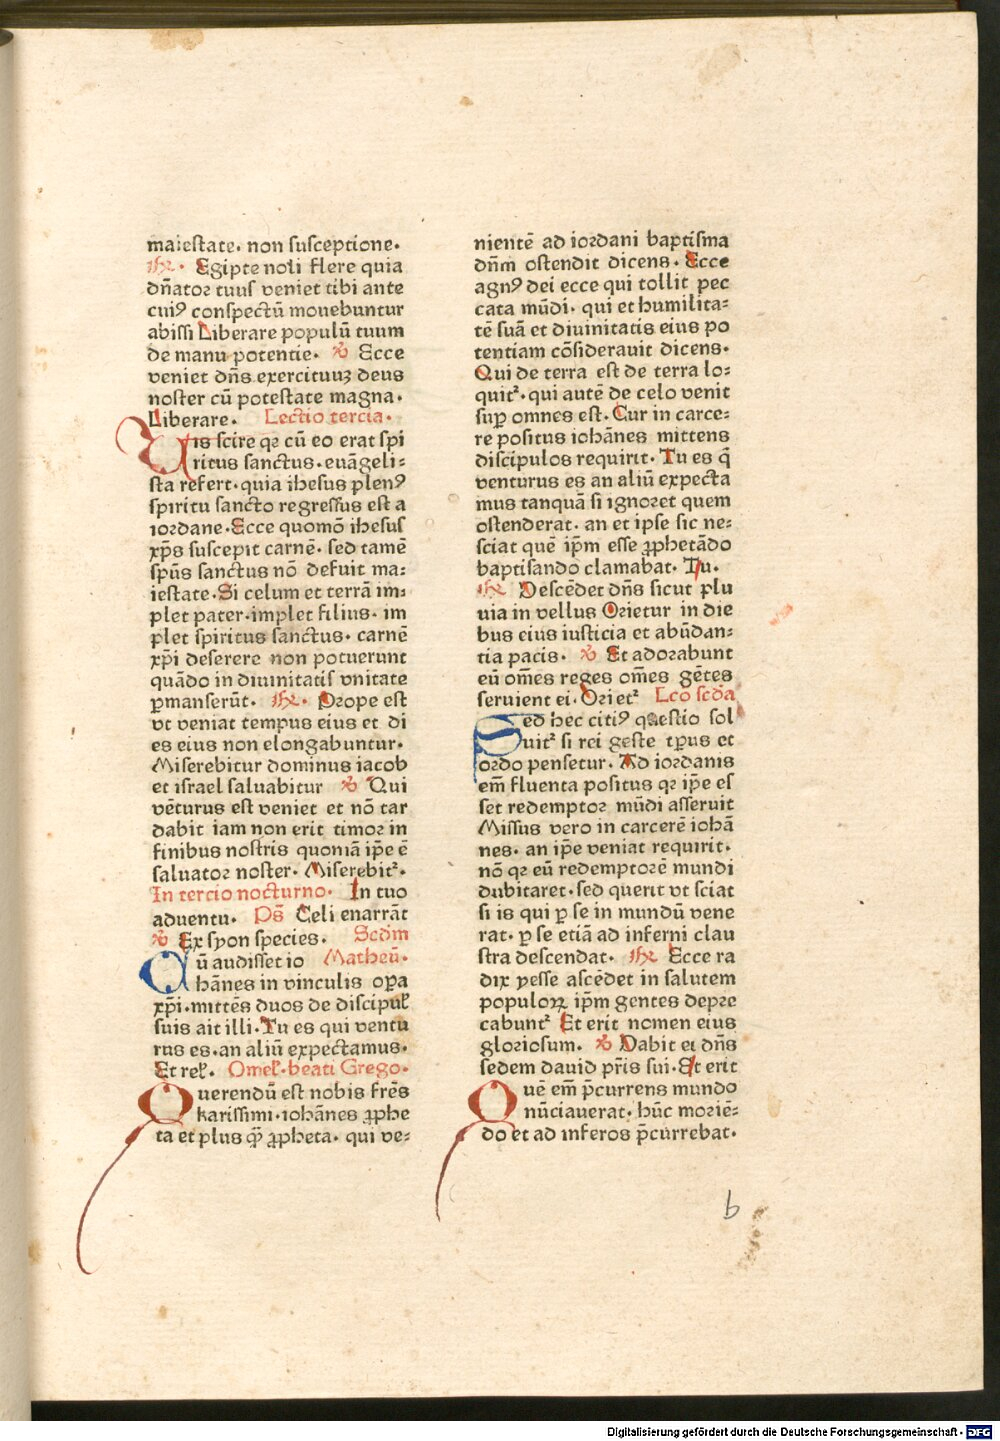 maiestate. non susceptione.
℟. Egipte noli flere quia
dn̄ator tuus veniet tibi ante
cuiꝰ conspectū mouebuntur
abissi Liberare populū tuum
de manu potentie. ℣ Ecce
veniet dn̄s exercituuꝫ deus
noster cū potestate magna.
Liberare. Lectio tercia.
Uis scire qꝛ cū eo erat spi
ritus sanctus. euāgeli⸗
sta refert. quia ihesus plenꝰ
spiritu sancto regressus est a
iordane. Ecce quomō ihesus
xp̄s suscepit carnē. sed tamē
sp̄us sanctus nō defuit ma⸗
iestate. Si celum et terrā im⸗
plet pater. implet filius. im
plet spiritus sanctus. carnē
xp̄i deserere non potuerunt
quādo in diuinitatis vnitate
ꝑmanserūt. ℟. Prope est
vt veniat tempus eius et di
es eius non elongabuntur.
Miserebitur dominus iacob
et israel saluabitur ℣ Qui
vēturus est veniet et nō tar
dabit iam non erit timor in
finibus nostris quoniā ip̄e ē
saluator noster. Miserebitᷣ.
In tercio nocturno. In tuo
aduentu. Ps̄ Celi enarrāt
℣ Ex syon species. Scd̄m
Cū audisset io Matheū.
hānes in vinculis oꝑa
xp̄i. mittēs duos de discipuł
suis ait illi. Tu es qui ventu
rus es. an aliū expectamus.
Et reł. Omeł. beati Grego.
Querendū est nobis frēs
karissimi. iohānes ꝓphe
ta et plus qꝫ̄ ꝓpheta. qui ve⸗
nientē ad iordani baptisma
dn̄m ostendit dicens. Ecce
agnꝰ dei ecce qui tollit pec
cata mūdi. qui et humilita⸗
tē suā et diuinitatis eius po
tentiam cōsiderauit dicens.
Qui de terra est de terra lo⸗
quitᷣ. qui autē de celo venit
suꝑ omnes est. Cur in carce⸗
re positus iohānes mittens
discipulos requirit. Tu es q̄
venturus es an aliū expecta
mus tanquā si ignoret quem
ostenderat. an et ipse sic ne⸗
sciat quē ip̄m esse ꝓphetādo
baptisando clamabat. Tu.
℟ Descēdet dn̄s sicut plu
uia in vellus Orietur in die
bus eius iusticia et abūdan⸗
tia pacis. ℣ Et adorabunt
eū om̄es reges om̄es gētes
seruient ei. Orietᷣ Lc̄o scd̄a
Sed hec citiꝰ questio sol
uitᷣ si rei geste tp̄us et
ordo pensetur. Ad iordanis
em̄ fluenta positus qꝛ ip̄e es
set redemptor mūdi asseruit
Missus vero in carcerē iohā
nes. an ip̄e veniat requirit.
nō qꝛ eū redemptorē mundi
dubitaret. sed querit vt sciat
si is qui ꝑ se in mundū vene
rat. ꝑ se etiā ad inferni clau
stra descendat. ℟ Ecce ra
dix yesse ascēdet in salutem
populoꝝ ip̄m gentes depre
cabuntᷣ Et erit nomen eius
gloriosum. ℣ Dabit ei dn̄s
sedem dauid pr̄is sui. Et erit
Quē em̄ p̄currens mundo
nūciauerat. hūc moriē⸗
do et ad inferos p̄currebat.
b
Digitalisierung gefördert durch die Deutsche Forschungsgemeinschaft - DFG